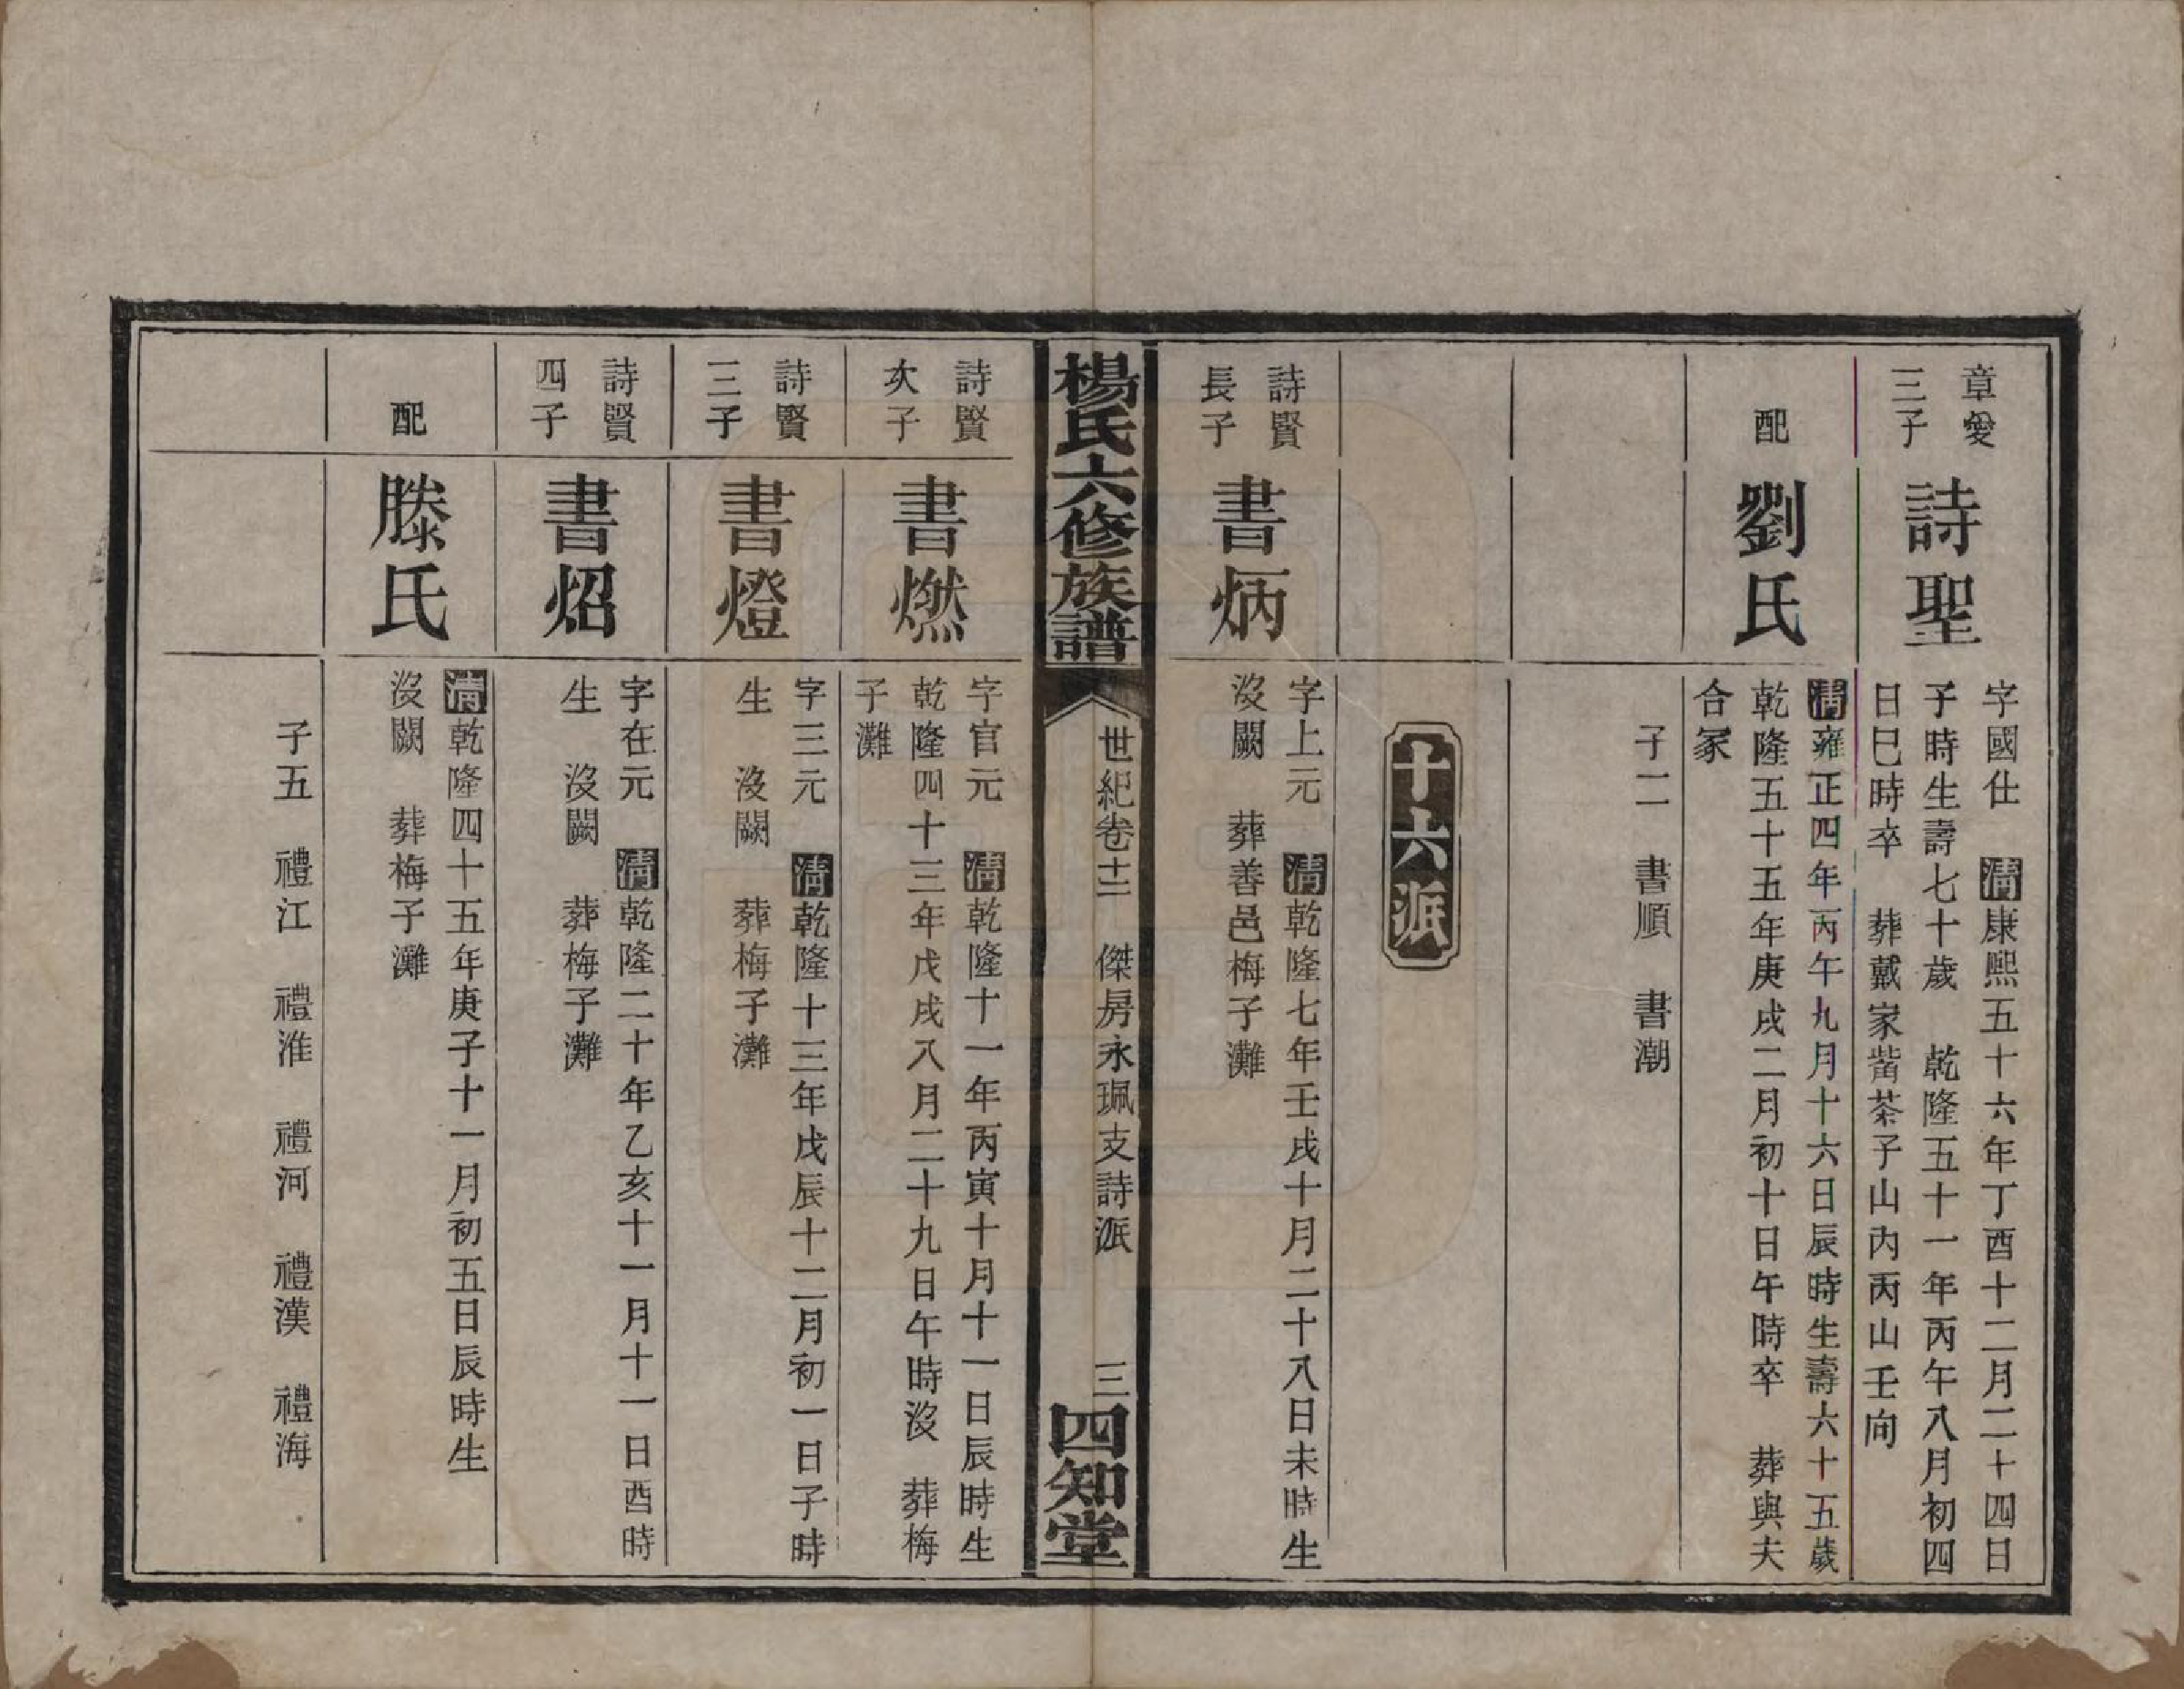 章愛
三子
詩聖
字國仕　清康熙五十六年丁酉十二月二十四日
子時生壽七十歲　乾隆五十一年丙午八月初四
日巳時卒　葬戴家喾茶子山內丙山壬向
配
劉氏
清雍正四年丙午九月十六日辰時生壽六十五歲
乾隆五十五年庚戌二月初十日午時卒　葬與夫
合冢
子二　書順　書潮
十六派
詩賢
長子
書炳
字上元　清乾隆七年壬戌十月二十八日未時生
沒闕　葬善邑梅子灘
楊氏六修族譜
世紀卷十二　傑房永珮支詩派　三
四知堂
詩賢
次子
書燃
字官元　清乾隆十一年丙寅十月十一日辰時生
乾隆四十三年戊戌八月二十九日午時沒　葬梅
子灘
詩賢
三子
書燈
字三元　清乾隆十三年戊辰十二月初一日子時
生　沒闕　葬梅子灘
詩賢
四子
書炤
字在元　清乾隆二十年乙亥十一月十一日酉時
生　沒闕　葬梅子灘
配
滕氏
清乾隆四十五年庚子十一月初五日辰時生
沒闕　葬梅子灘
子五　禮江　禮淮　禮河　禮漢　禮海